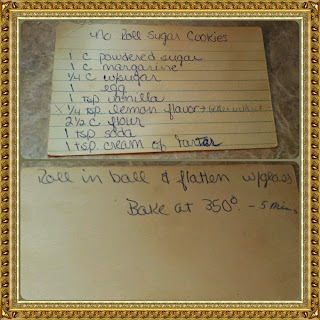 No Roll Sugar Cookies
1 C powdered sugar
1 C margarine
1/4 C sugar
1 egg
1 tsp vanilla
1/4 tsp lemon flavor → better without
2 1/2 C flour
1 tsp. soda
1 tsp. cream of tartar
Roll in ball & flatten w/glass
Bake at 350° - 5 min.